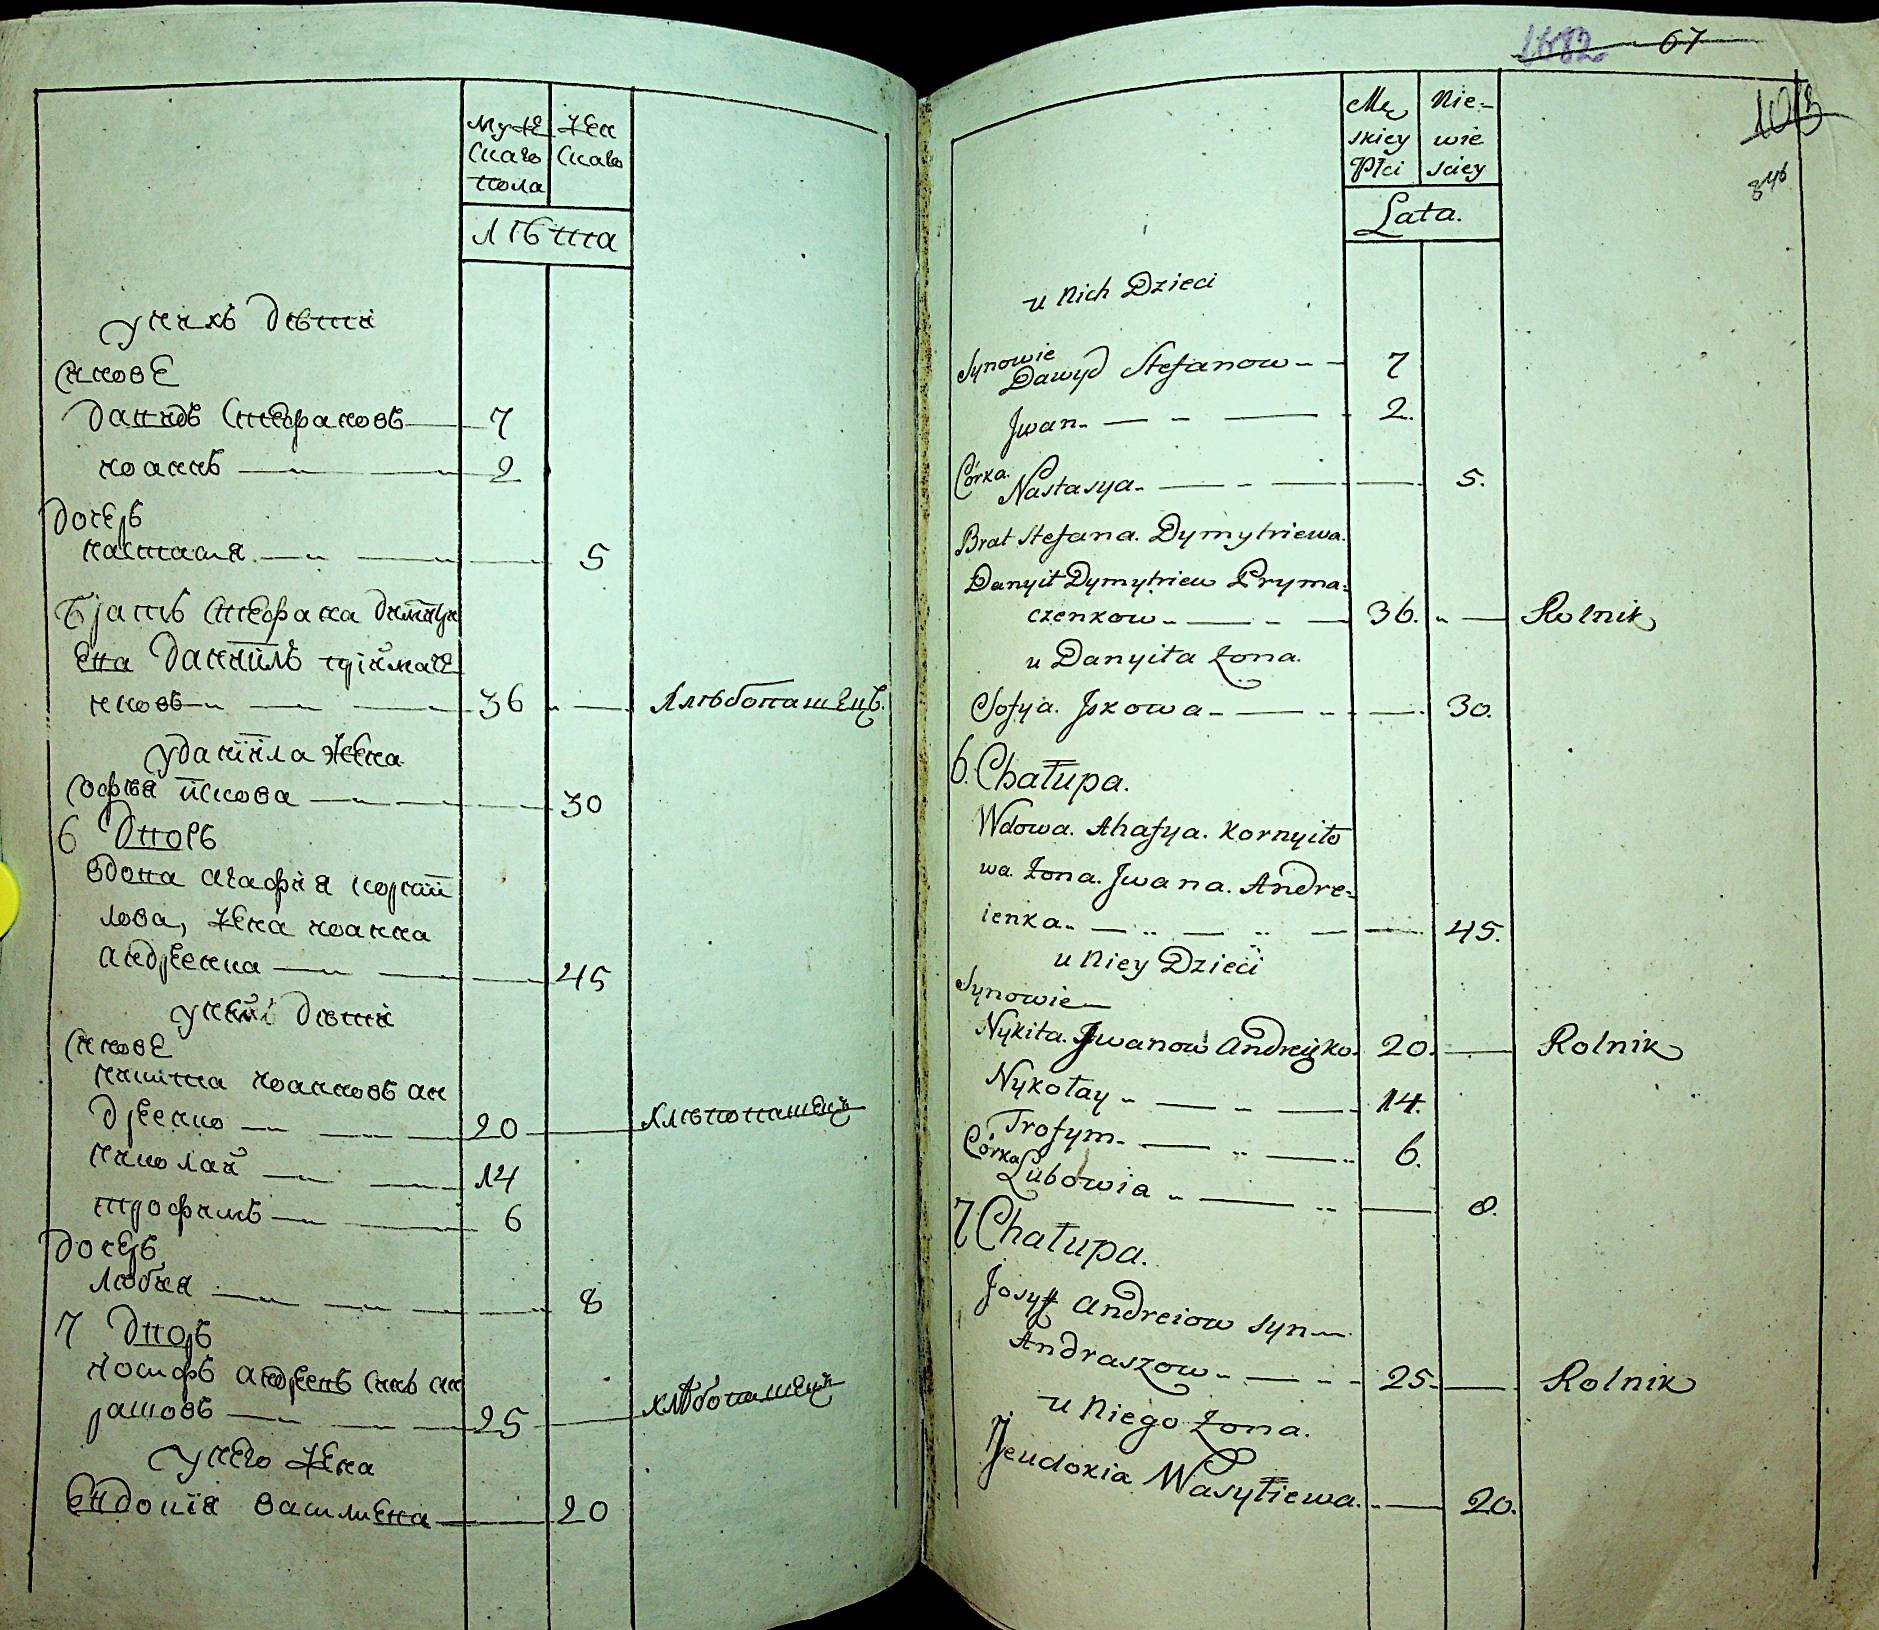 Муже Жен
скаго скаго
пола
Лѣта
у нихъ дѣти
Синове
Давидъ Стефановъ 7
Иоаннъ 2
Дочерь
Настасия 5
Братъ Стефана Димитри
ева Даниилъ Приймаче
нковъ 36 Хлѣбопашецъ
у Даниила жена
София Искова 30
6 Дворъ
Вдова Агафия Корнии
лова, жена Иоанна
Андреенка 45
у ней дѣти
Синове
Никита Иоанновъ Ан
дреенко 20 Хлѣбопашецъ
Николай 14
Трофимъ 6
Дочерь
Любвя 8
7 Дворъ
Иосифъ Андреевъ синъ Анд
рашовъ 25 хлѣбопашецъ
у него жена
Евдокїя Василиева 20
67
846
Mę Nie-
skiey wie
Płci sciey
Lata.
u Nich Dzieci
Synowie
Dawyd Stefanow 7
Jwan 2.
Córka.
Nastasya 5.
Brat Stefana. Dymytriewa.
Danyił Dymytriew Pryma-
czenkow 36. Rolnik
u Danyiła Żona.
Sofya. Jskowa 30.
6. Chałupa.
Wdowa. Ahafya. Kornyiło
wa. Żona. Jwana. Andre-
ienka 45.
u Niey Dzieci
Synowie
Nykita. Jwanow Andreyko. 20. Rolnik
Nykołay 14.
Trofym 6.
Córka
Lubowia 8.
7 Chałupa.
Josyf Andreiow syn
Andraszow 25. Rolnik
u Niego Żona.
Jeudokia Wasyłiewa. 20.